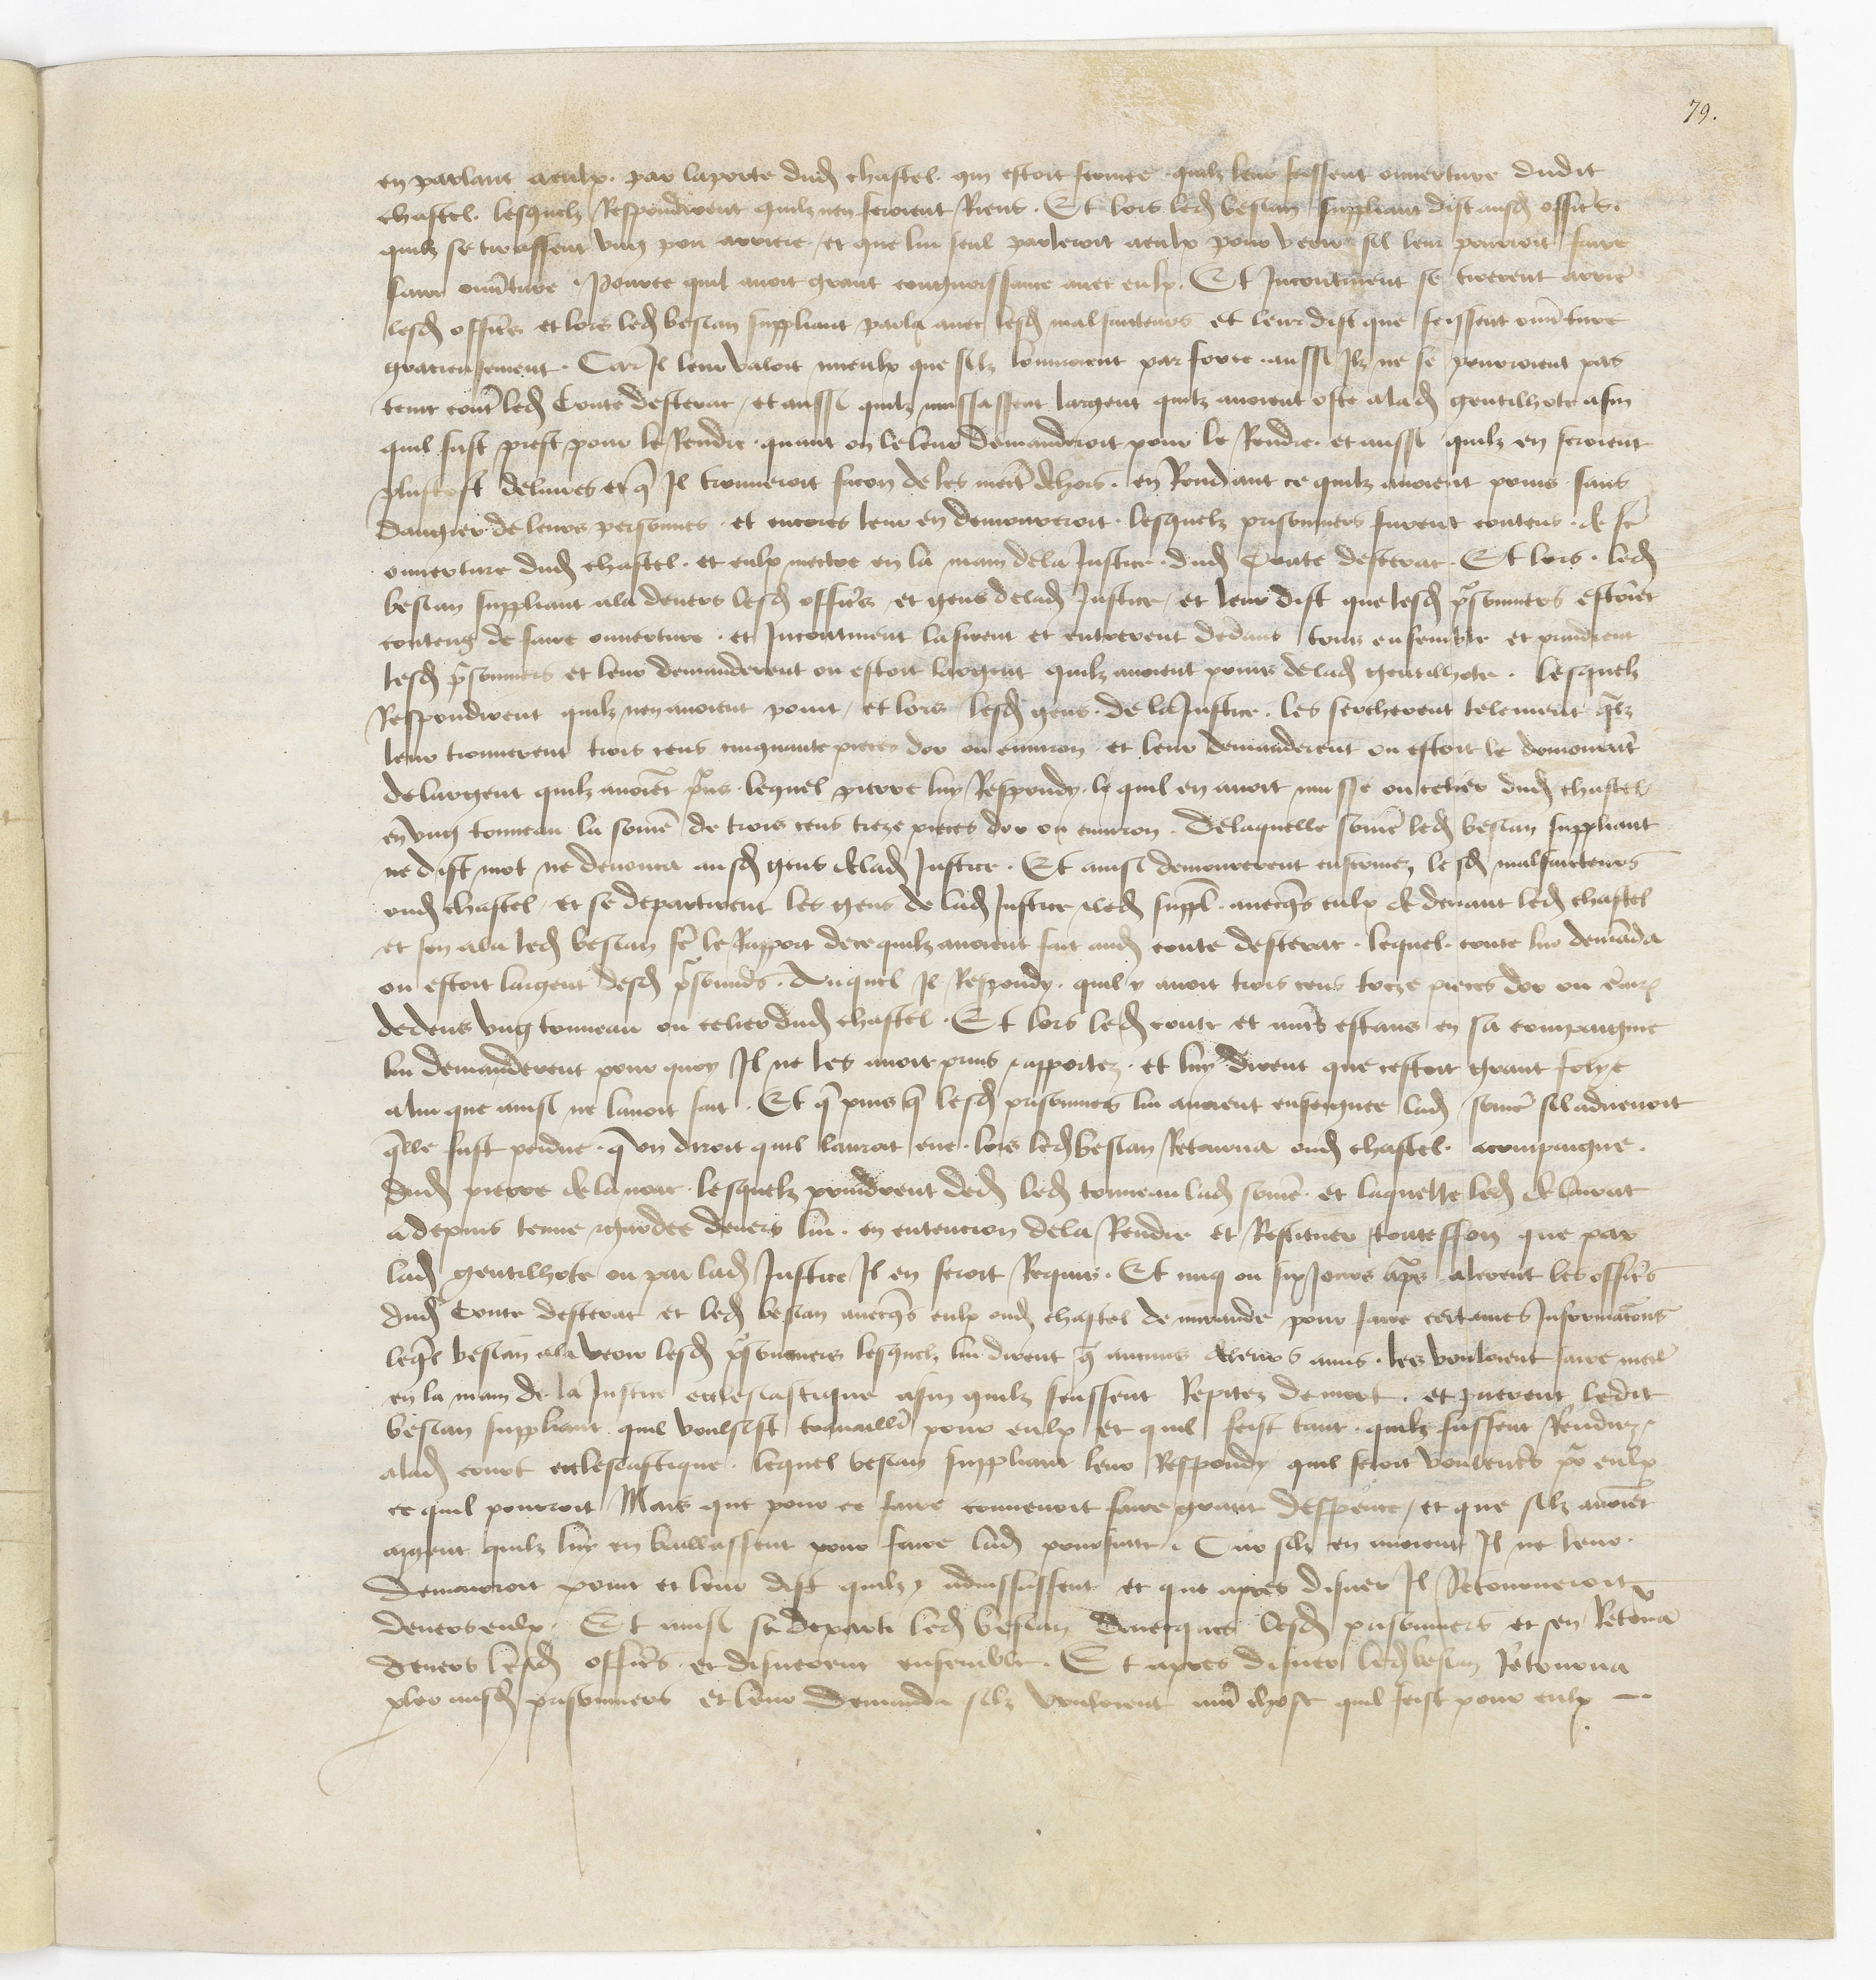 79.
en parlant a eulx par la porte dud chastel qui estoit fermee quilz leur feissent ouverture dudit
chastel. lesquelz Respondirent quilz nen feroient Riens. Et lors led besian suppliant dist ausd officrs
quilz se tirassent ung peu arriere et que lui seul parleroit a eulx pour veoir sil leur pourroit faire
faire ouvture. Pource quil avoit grant congnoissance avec eulx. Et Incontinent se tirerent arrie
lesd officrs et lors led besian suppliant parla avec lesd malfaiteurs et leur dist que feissent ouvture
gracieusement. Car Il leur valoit mieulx que silz louvroient par force. aussi Ilz ne se pourroient pas
tenir contre led Conte desterac, et aussi quilz mussassent largent quilz avoient oste a lad gentilhote afin
quil fust prest pour le Rendre quant on le leur demanderoit pour le Rendre. et aussi quilz en seroient
plustost delivres et q Il trouveroit facon de les mectr dehors. en Rendant ce quilz avoient prins sans
dangier de leurs personnes. et encores leur en demoureroit. lesquelz prisonniers furent contens. de fe
ouverture dud chastel. et eulx mectre en la main de la Justice. dud Conte desterac. Et lors. led
besian suppliant ala devers lesd officrs et gens de lad Justice, et leur dist que lesd prisonniers estoiet
contens de faire ouverture. et Incontinent la firent et entrerent dedans tous ensemble et prindrent
lesd prisonniers et leur demanderent ou estoit largent quilz avoient prins de lad gentilhote. lesquelz
Respondirent quilz nen avoient point, et lors lesd gens de la Justice. les sercherent telement qlz
leur trouverent trois cens cinquante pieces dor ou environ et leur demanderent ou estoit le demourat
de largent quilz avoiet prins. lequel pierre luy Respondy. le quil en avoit musse ou celier dud chastel
en ung tonneau la some de trois cens treze pieces dor ou environ. De laquelle some led besian suppliant
ne dist mot ne denonca ausd gens de lad Justice. Et ainsi demourerent enfermez lesd malfaicteurs
oud chastel, et se departirent les gens de lad Justice, led suppl. avecqs eulx de devant led chastel
et sen ala led besian fe le Rapport de ce quilz avoient fait aud conte desterac. lequel. conte lui demada
ou estoit largent desd prisonnis. Auquel Il Respondy. quil y avoit trois cens treze pieces dor ou envir
dedens ung tonneau ou celier dud chastel. Et lors led conte et autrs estans en sa compaignie
lui demanderent pour quoy Il ne les avoit prins apportez. et luy dirent que cestoit grant folye
a lui que ainsi ne lavoit fait. Et q puis q lesd prisonniers lui avoient enseignee lad some sil advenoit
qlle fust perdue. q on diroit quil lauroit eue. lors led besian Retourna oud chastel. acompaigne.
dud pierre de lanoar lesquelz prindrent ded led tonneau lad some. et laquelle led
a depuis tenue gardee devers lui. en entencion de la Rendre et Restituer toutesfoiz que par
lad gentilhote ou par lad Justice Il en seroit Requis. Et cinq ou six Jours aps alerent les officrs
dud Conte desterac et led besian avecqs eulx oud chastel de mirande pour faire certaines Informacons
leql besian ala veoir lesd prisonniers lesquelz lui dirent q aucuns de leurs amis. les vouloient faire mectr
en la main de la Justice ecclesiastique afin quilz feussent Repitez de mort. et prierent ledit
besian suppliant quil voulsist travaillr pour eulx et quil feist tant. quilz fussent Renduz
a lad court ecclesiastique. lequel besian suppliant leur Respondy quil feroit voulentrs pr eulx
ce quil pourroit Mais que pour ce faire convenoit faire grant despence, et que silz avoiet
argent quilz luy en baillassent pour faire lad poursuite. Car silz en avoient Il ne leur.
demouroit point et leur dist quilz y advisassent et que apres disner Il Retourneroit
devers eulx. Et ainsi se departi led besian davecques lesd prisonniers et sen Retorna
devers lesd officrs et disnerent ensemble. Et apres disner led besian Retourna
pler ausd prisonniers et leur demanda silz vouloient aut chose quil feist pour eulx